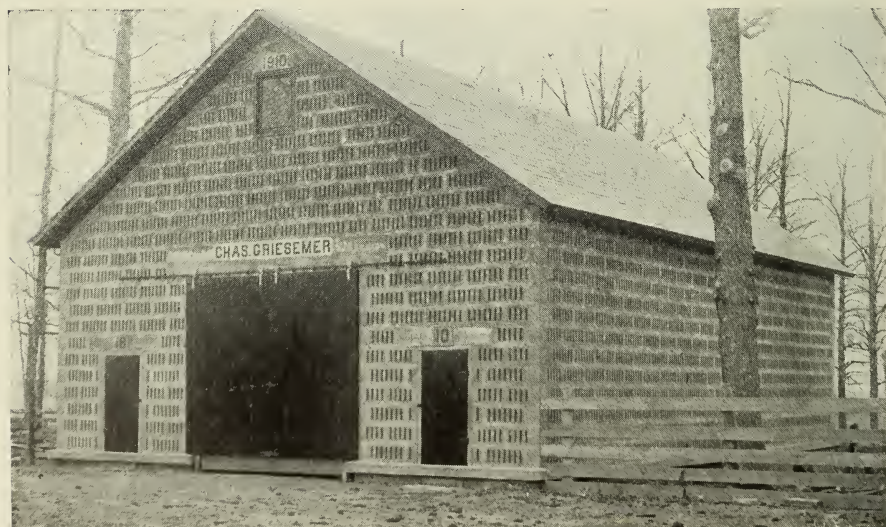 1910
CHAS. GRIESEMER
10